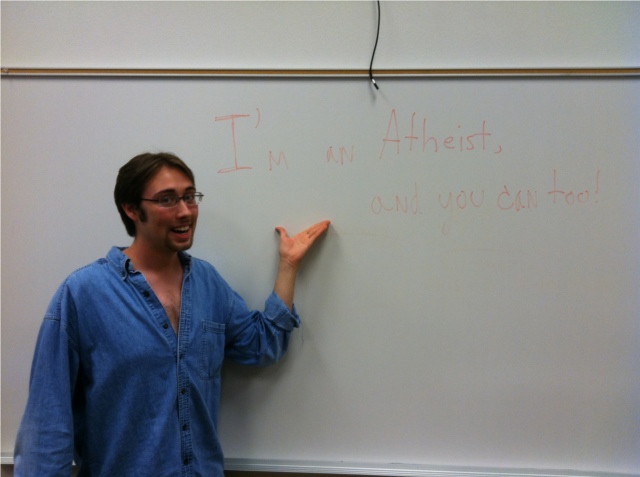 I'm an Atheist,
and you can too!